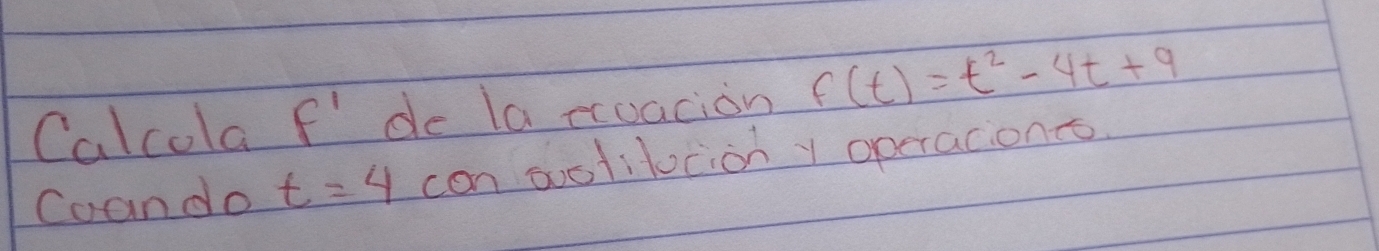 Calcula f' de la ecuación f(t) = t² - 4t + 9
Cuando t = 4 con sustitución y operaciones.